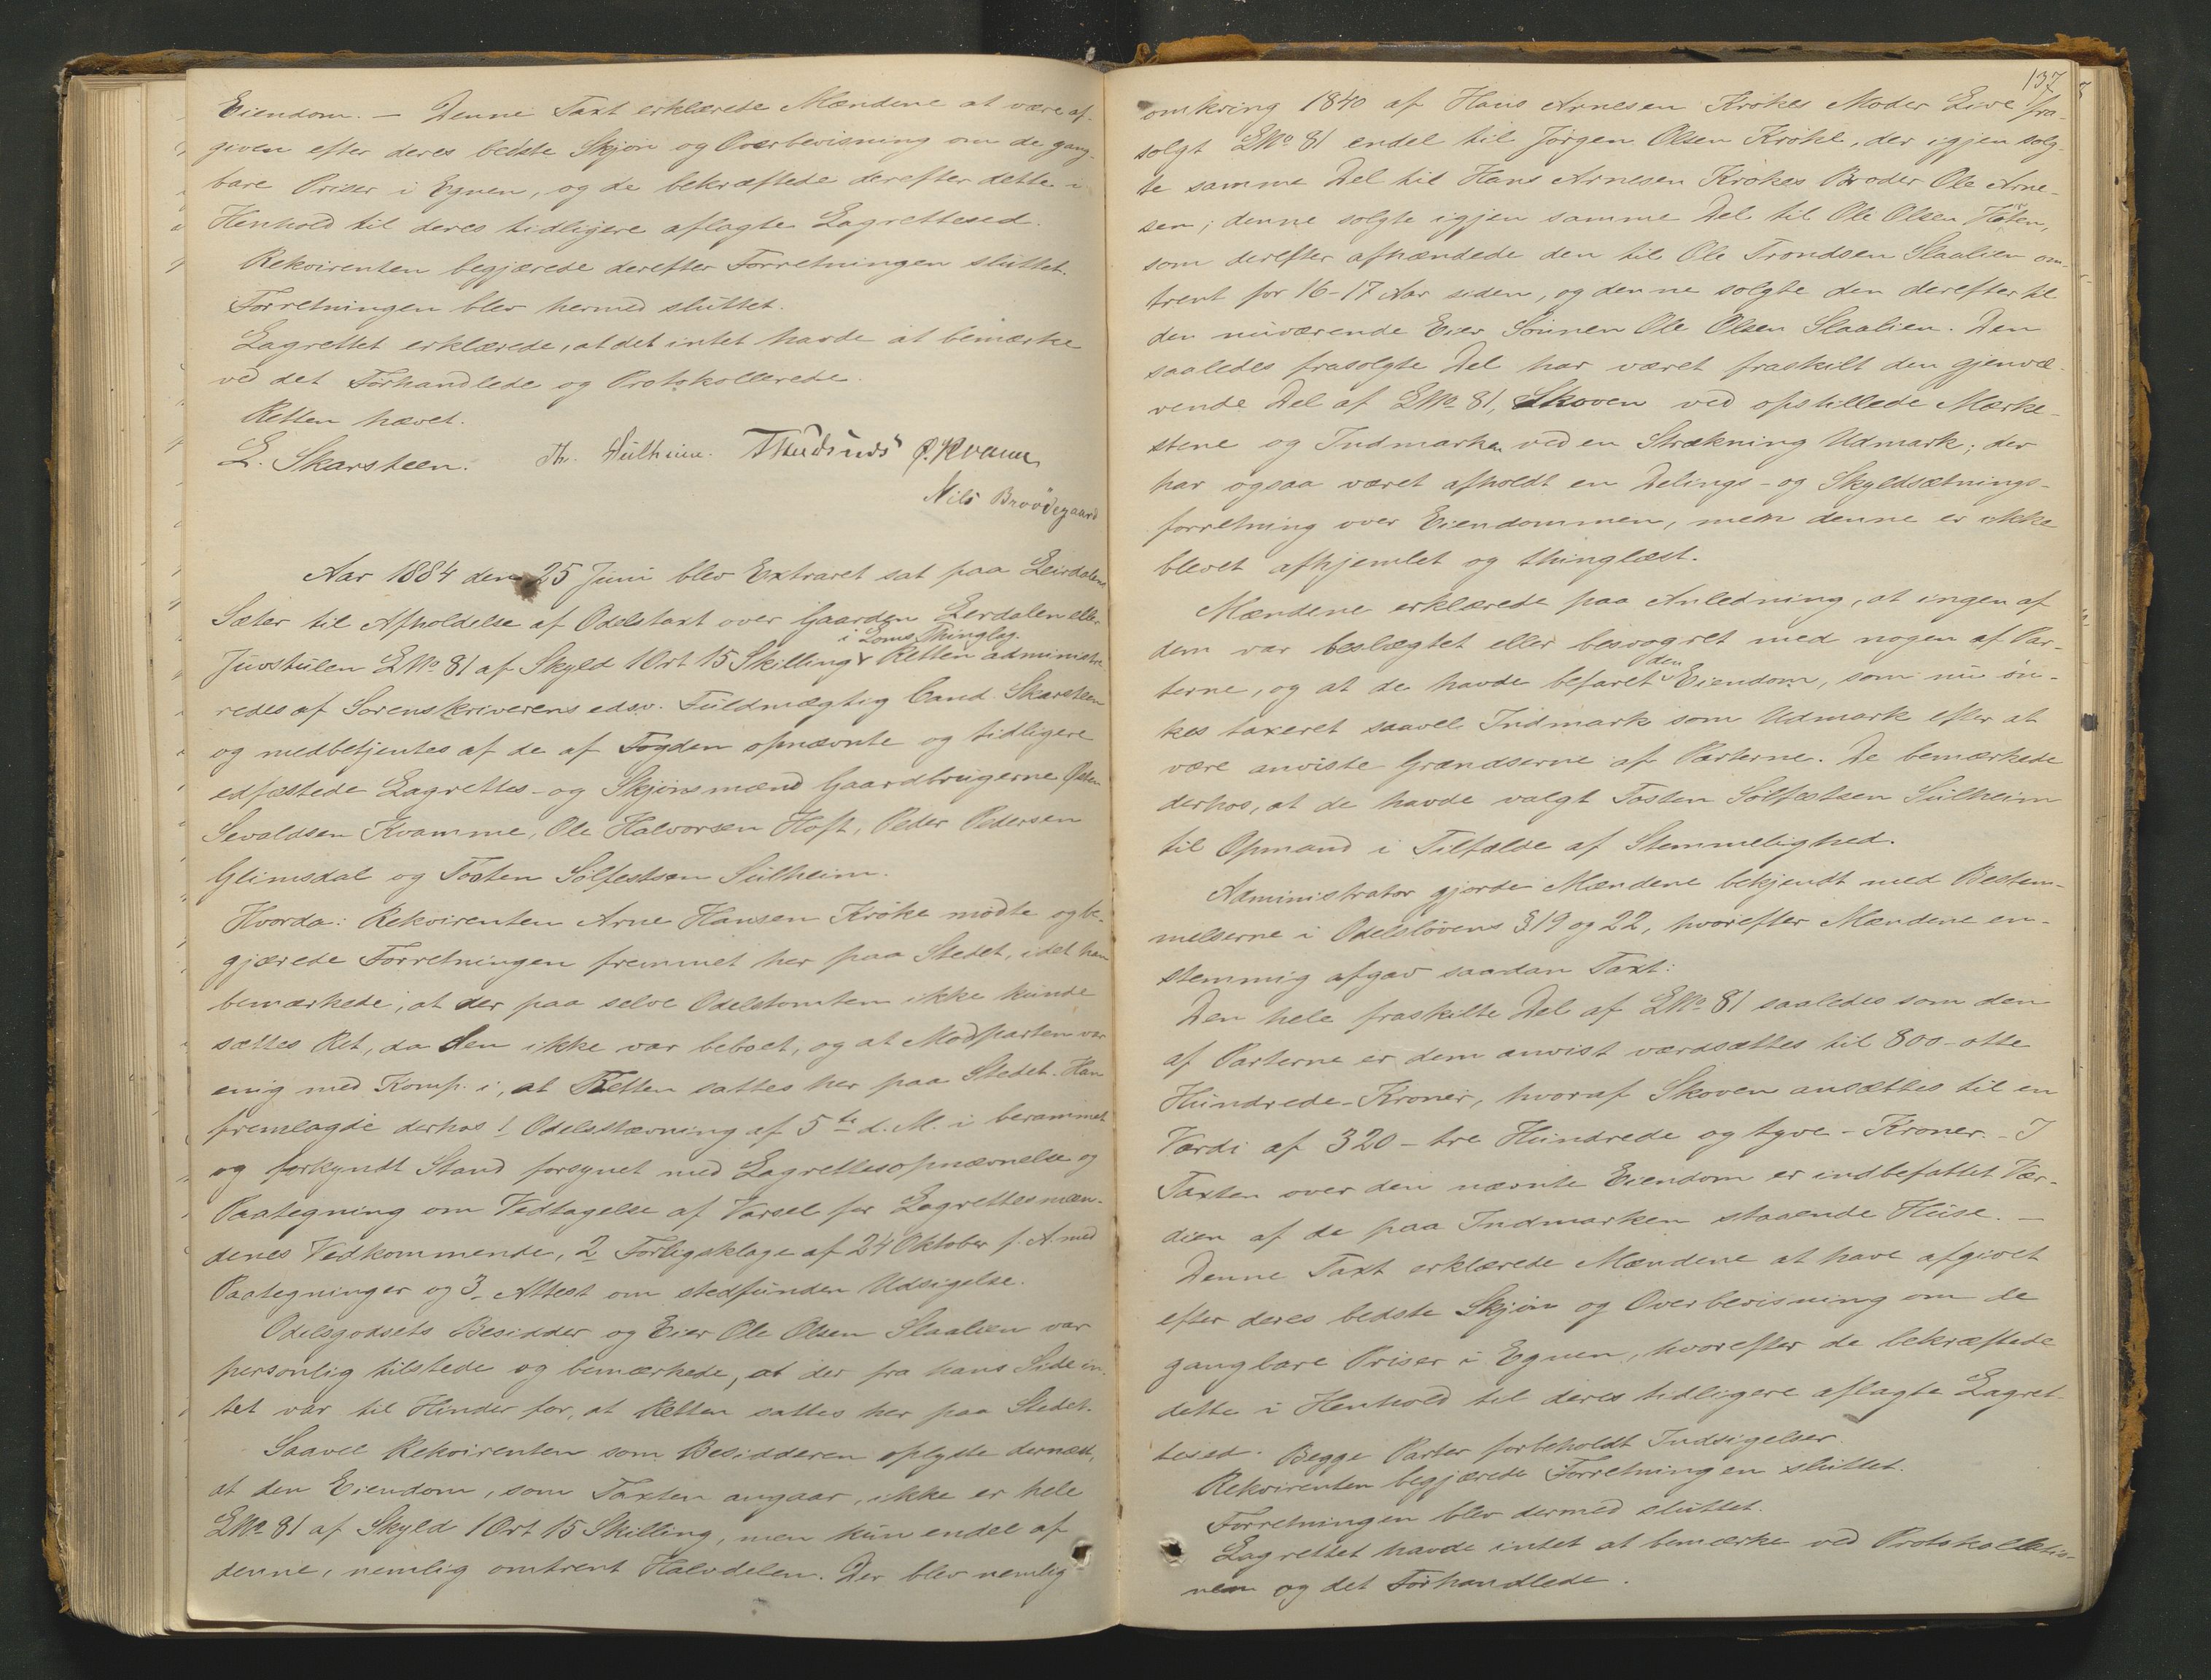 Eiendom. – Denne Taxt erklærede Mændene at være af-
given efter deres bedste Skjøn og Overbevisning om de gang-
bare Priser i Egnen, og de bekræftede derefter dette i
Henhold til deres tidligere aflagte Lagrettesed.
Rekvirenten begjærede derefter Forretningen sluttet.
Forretningen blev hermed sluttet.
Lagrettet erklærede, at det intet havde at bemærke
ved det Forhandlede og Protokollerede.
Retten hævet.
L. Skarsteen. Th. Sulheim. Ø. Kvamme
Nils Brodegaard
Aar 1884 den 25 Juni blev Extraret sat paa Leirdalens
Sæter til Afholdelse af Odelstaxt over Gaarden Lerdalen eller
i Loms Thinglag.
Juvstulen LNo 81 af Skyld 1 Ort 15 Skilling. Retten administre-
redes af Sorenskriverens edsv. Fuldmægtig Cand. Skarsteen
og medbetjentes af de af Fogden opnævnte og tidligere
edfæstede Lagrettes- og Skjønsmænd Gaardbrugerne Østen
Sevaldsen Kvamme, Ole Halvorsen Hoft, Peder Pedersen
Glimsdal og Tosten Sølfestsen Sulheim.
Hvorda: Rekvirenten Arne Hansen Krøke mødte og be-
gjærede Forretningen fremmet her paa Stedet, idet han
bemærkede, at der paa selve Odelstomten ikke kunde
sættes Ret, da den ikke var beboet, og at Modparten var
enig med Komp. i, at Retten sattes her paa Stedet. Han
fremlagde derhos 1 Odelsstævning af 5te d. M. i berammet
og forkyndt Stand forsynet med Lagrettesopnævnelse og
Paategning om Vedtagelse af Varsel for Lagrettesmæn-
denes Vedkommende, 2 Forligsklage af 24 Oktober f. A. med
Paategninger og 3 Attest om stedfunden Udsigelse.
Odelsgodsets Besidder og Eier Ole Olsen Slaalien var
personlig tilstede og bemærkede, at der fra hans Side in-
tet var til Hinder for, at Retten sattes her paa Stedet.
Saavel Rekvirenten som Besidderen oplyste dernæst,
at den Eiendom, som Taxten angaar, ikke er hele
LNo 81 af Skyld 1 Ort 15 Skilling, men kun endel af
denne, nemlig omtrent Halvdelen. Der blev nemlig
137
omkring 1840 af Hans Arnesen Krøkes Moder Live fra-
solgt LNo 81 endel til Jørgen Olsen Krøke, der igjen solg-
te samme Del til Hans Arnesen Krøkes Broder Ole Arne-
sen; denne solgte igjen samme Del til Ole Olsen
som derefter afhændede den til Ole Trondsen Slaalien om-
trent for 16-17 Aar siden, og denne solgte den derefter til
den nuværende Eier Sønnen Ole Olsen Slaalien. Den
saaledes frasolgte Del har været fraskilt den gjenvæ-
rende Del af LNo 81, Skoven ved opstillede Mærke-
stene og Indmarken ved en Strækning Udmark; der
har ogsaa været afholdt en Delings- og Skyldsætnings-
forretning over Eiendommen, men denne er ikke
blevet afhjemlet og thinglæst.
Mændene erklærede paa Anledning, at ingen af
dem var beslægtet eller besvogret med nogen af Par-
den
terne, og at de havde befaret Eiendom, som nu øn-
kes taxeret saavel Indmark som Udmark efter at
være anviste Grændserne af Parterne. De bemærkede
derhos, at de havde valgt Tosten Sølfestsen Sulheim
til Opmand i Tilfælde af Stemmelighed.
Administrator gjorde Mændene bekjendt med Bestem-
melserne i Odelslovens § 19 og 22, hvorefter Mændene en-
stemmig afgav saadan Taxt:
Den hele fraskilte Del af LNo 81 saaledes som den
af Parterne er dem anvist værdsættes til 800 - otte
Hundrede - Kroner, hvoraf Skoven ansættes til en
Værdi af 320 - tre Hundrede og tyve - Kroner. - I
Taxten over den nævnte Eiendom er indbefattet Vær-
dien af de paa Indmarken staaende Huse. –
Denne Taxt erklærede Mændene at have afgivet
efter deres bedste Skjøn og Overbevisning om de
gangbare Priser i Egnen, hvorefter de bekræftede
dette i Henhold til deres tidligere aflagte Lagret-
tesed. Begge Parter forbeholdt Indsigelser.
Rekvirenten begjærede Forretningen sluttet.
Forretningen blev dermed sluttet.
Lagrettet havde intet at bemærke ved Protokollatio-
nen og det Forhandlede.